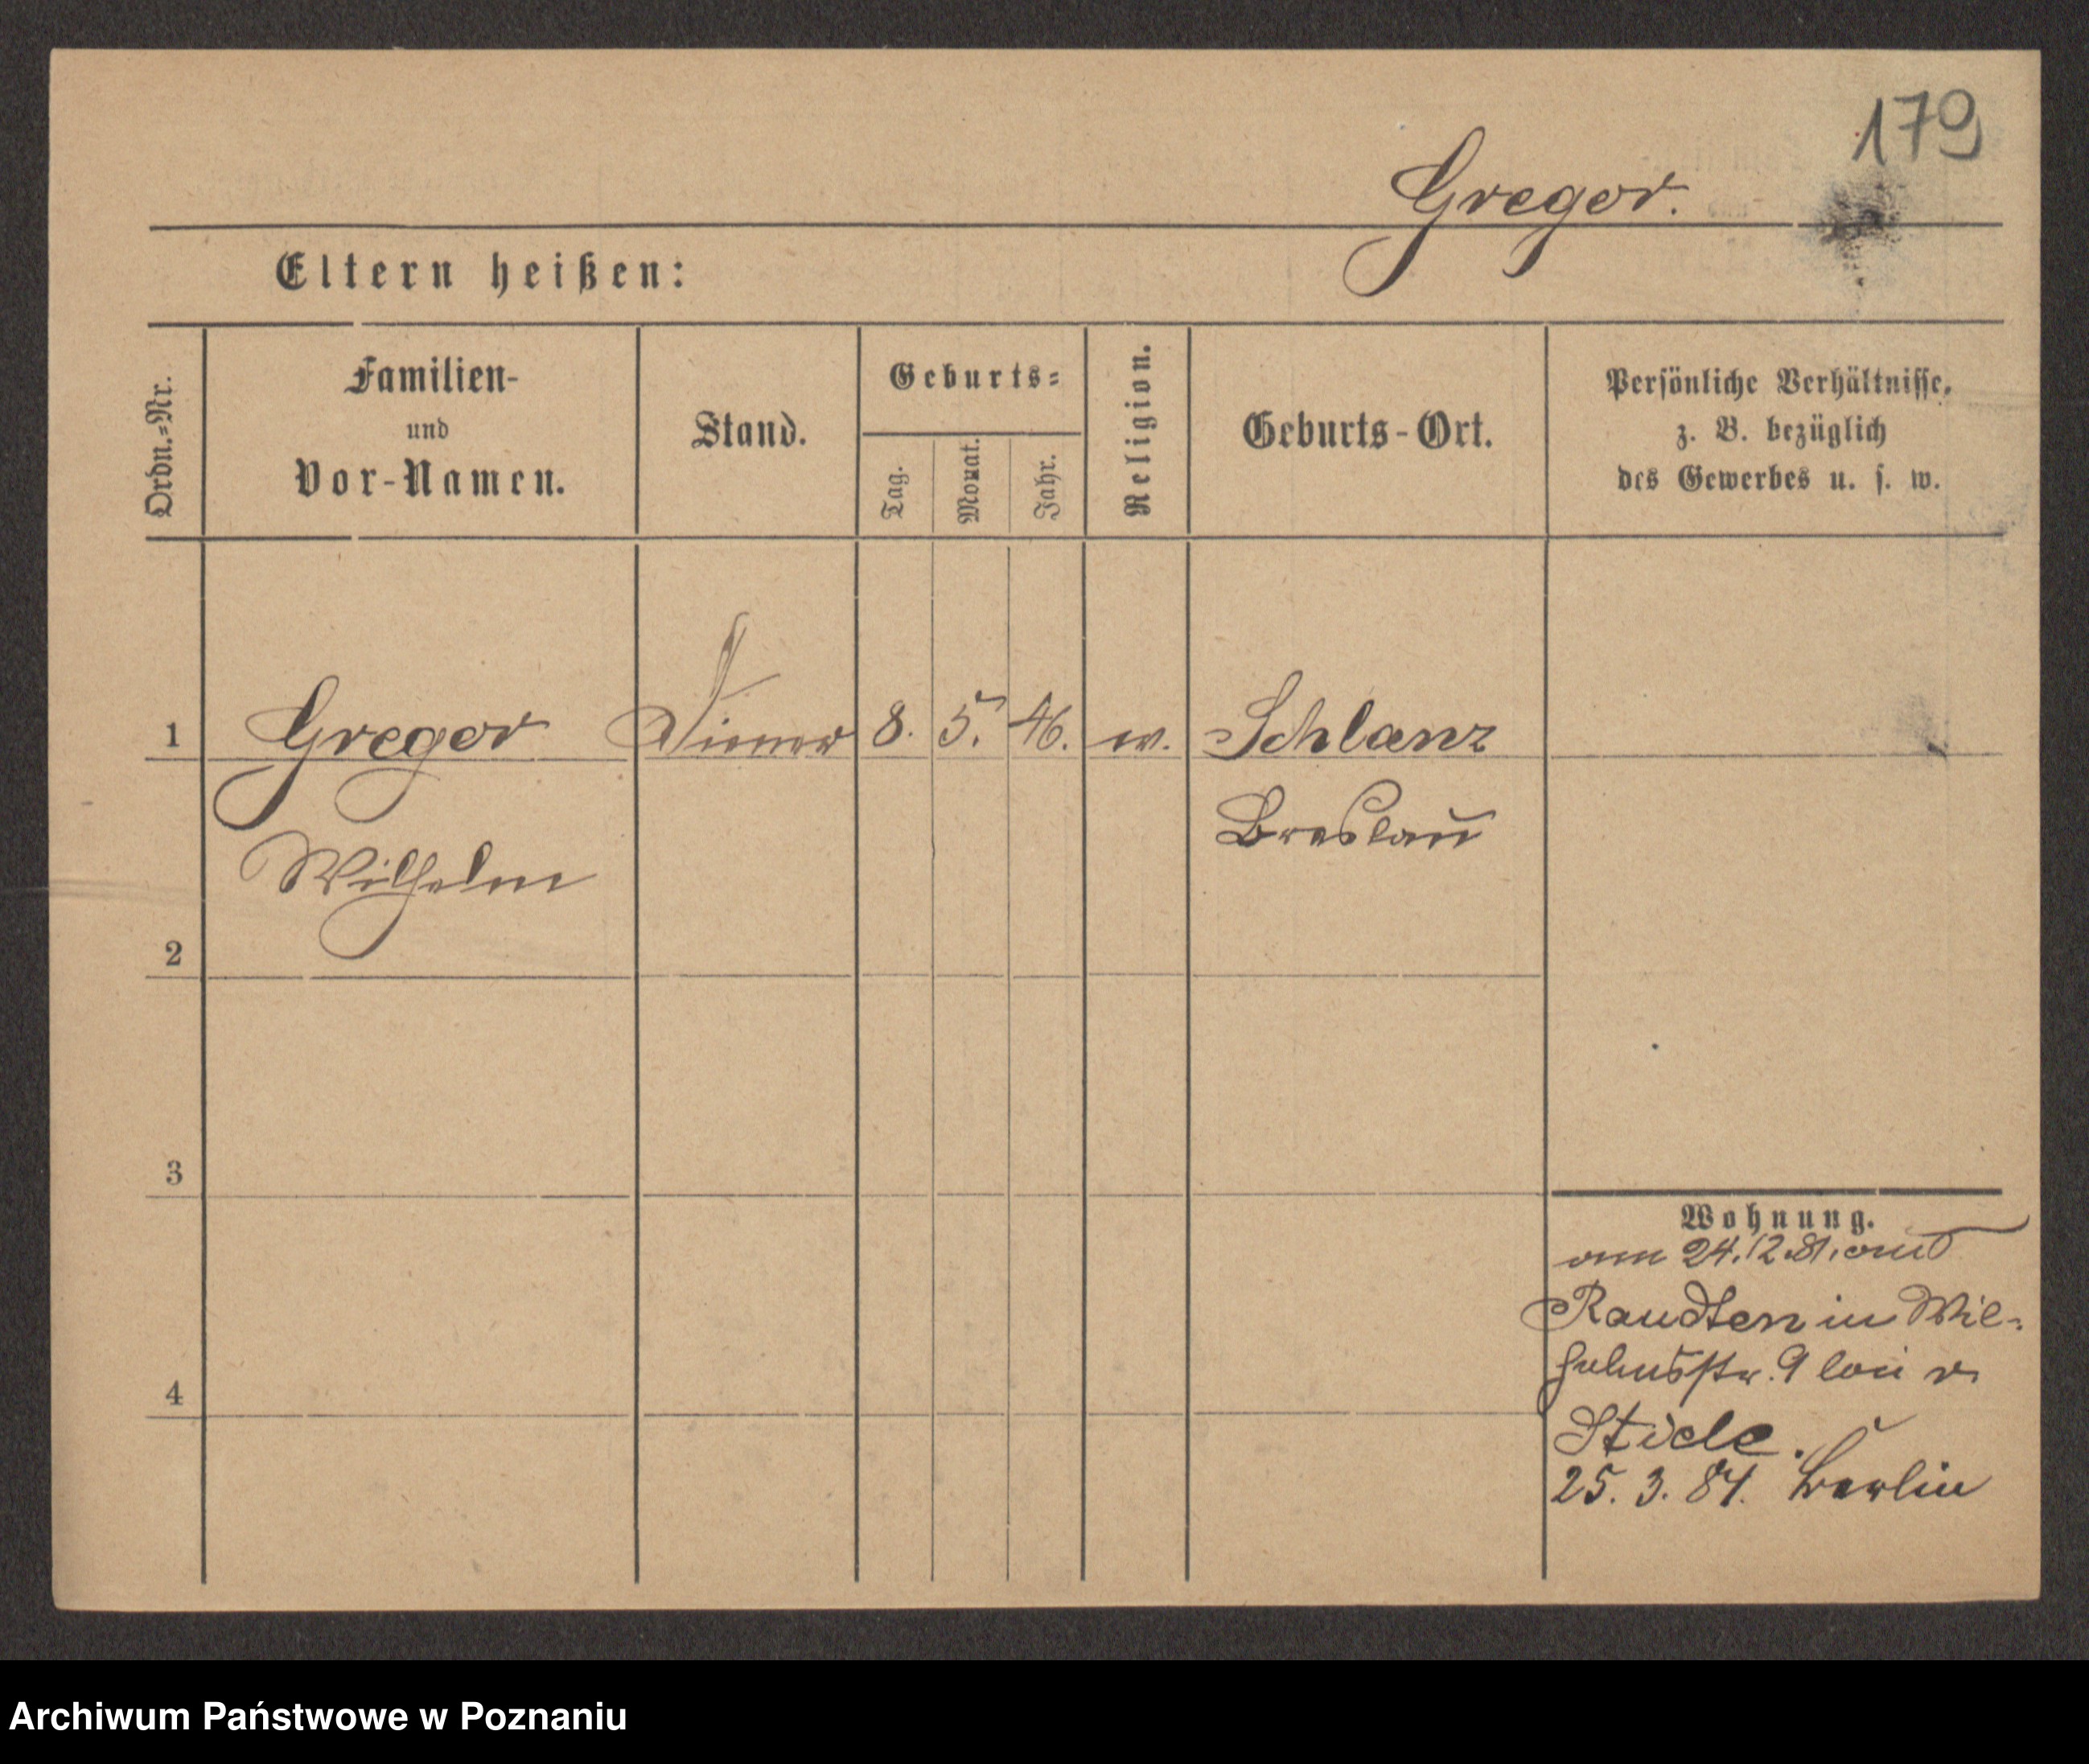 179
Gregor.
Eltern heißen:
Ordn.=Nr.
Familien-
und
Vor-Namen.
Stand.
Geburts=
Tag.
Monat.
Jahr.
Religion.
Geburts-Ort.
Persönliche Verhältnisse,
z. B. bezüglich
des Gewerbes u. s. w.
1 Gregor Diener 8. 5. 46. ev. Schlanz
Breslau
Wilhelm
2
3
4
Wohnung.
am 24.12.81. aus
Raudten in Wil-
helmsstr. 9 bei v.
Stiele.
25. 3. 84. Berlin
Archiwum Państwowe w Poznaniu